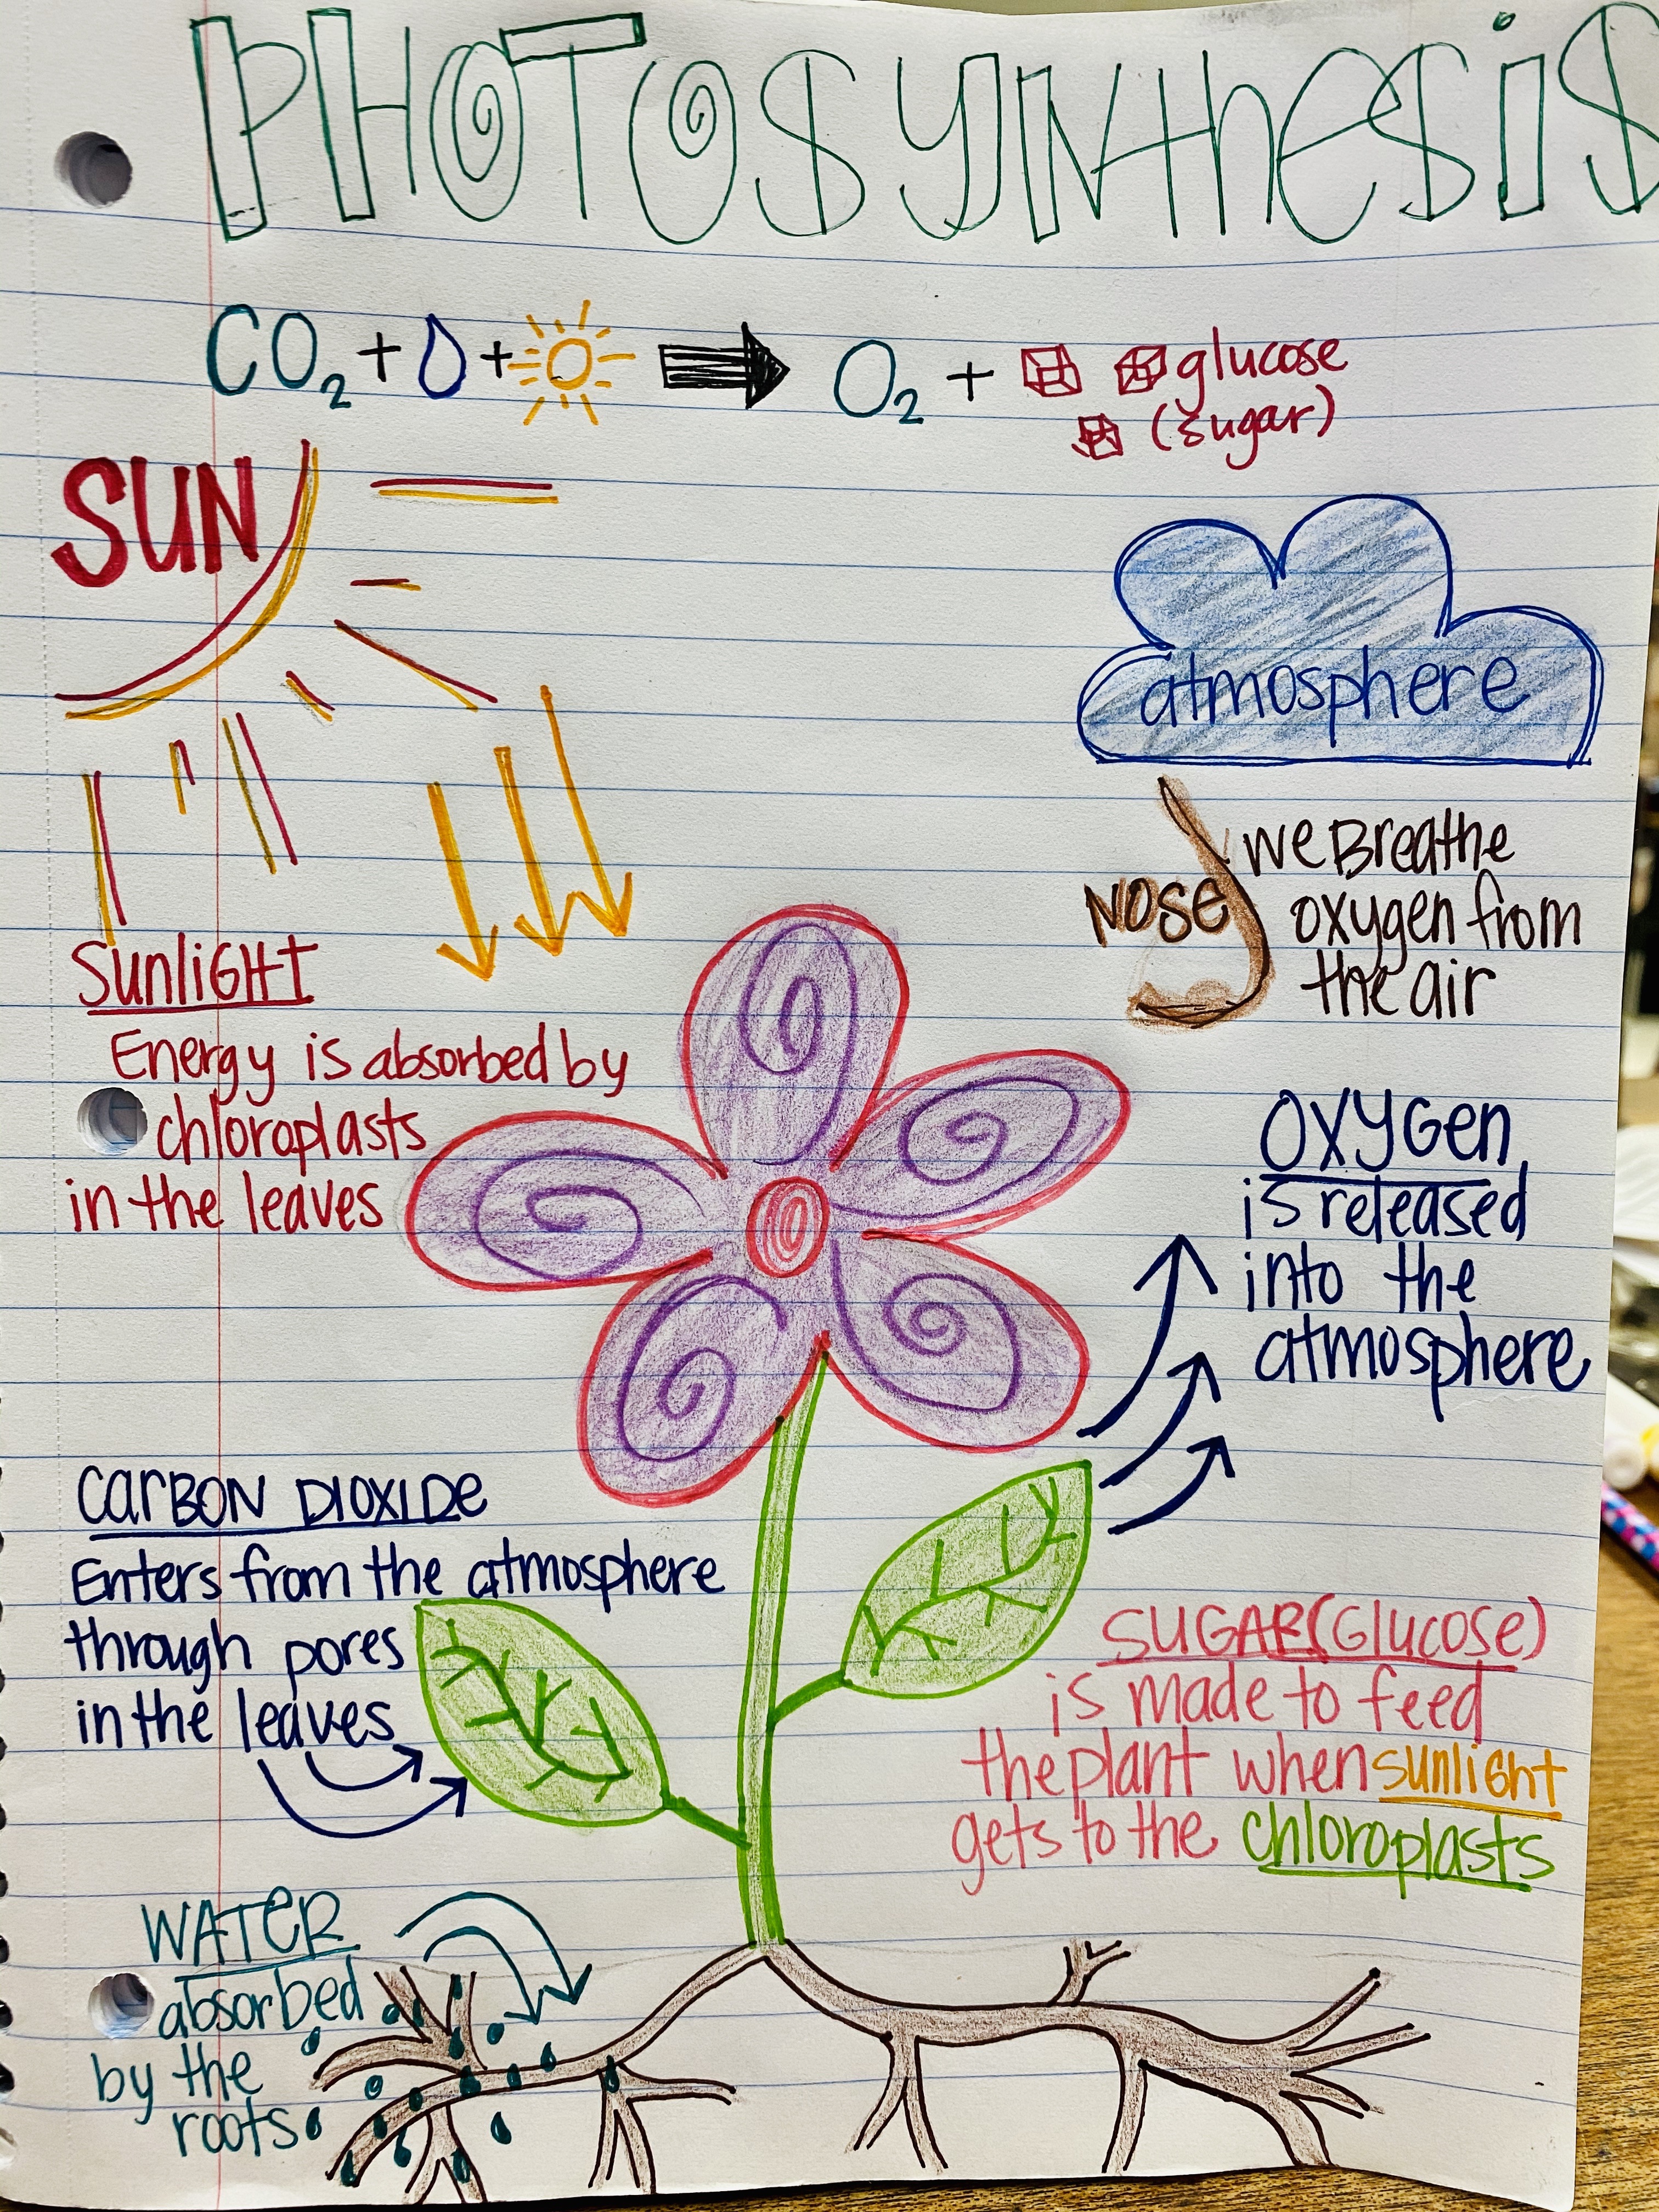 PHOTOSYNthesis
CO₂ + + O₂ + glucose
(sugar)
SUN
atmosphere
NOSE
we Breathe
oxygen from
the air
SunliGHT
Energy is absorbed by
chloroplasts
in the leaves
OXYGen
is released
into the
atmosphere
CarBON DIOXIDe
Enters from the atmosphere
through pores
in the leaves
SUGAR(Glucose)
is made to feed
the plant when sunliGht
gets to the chloroplasts
WATeR
absorbed
by the
roots